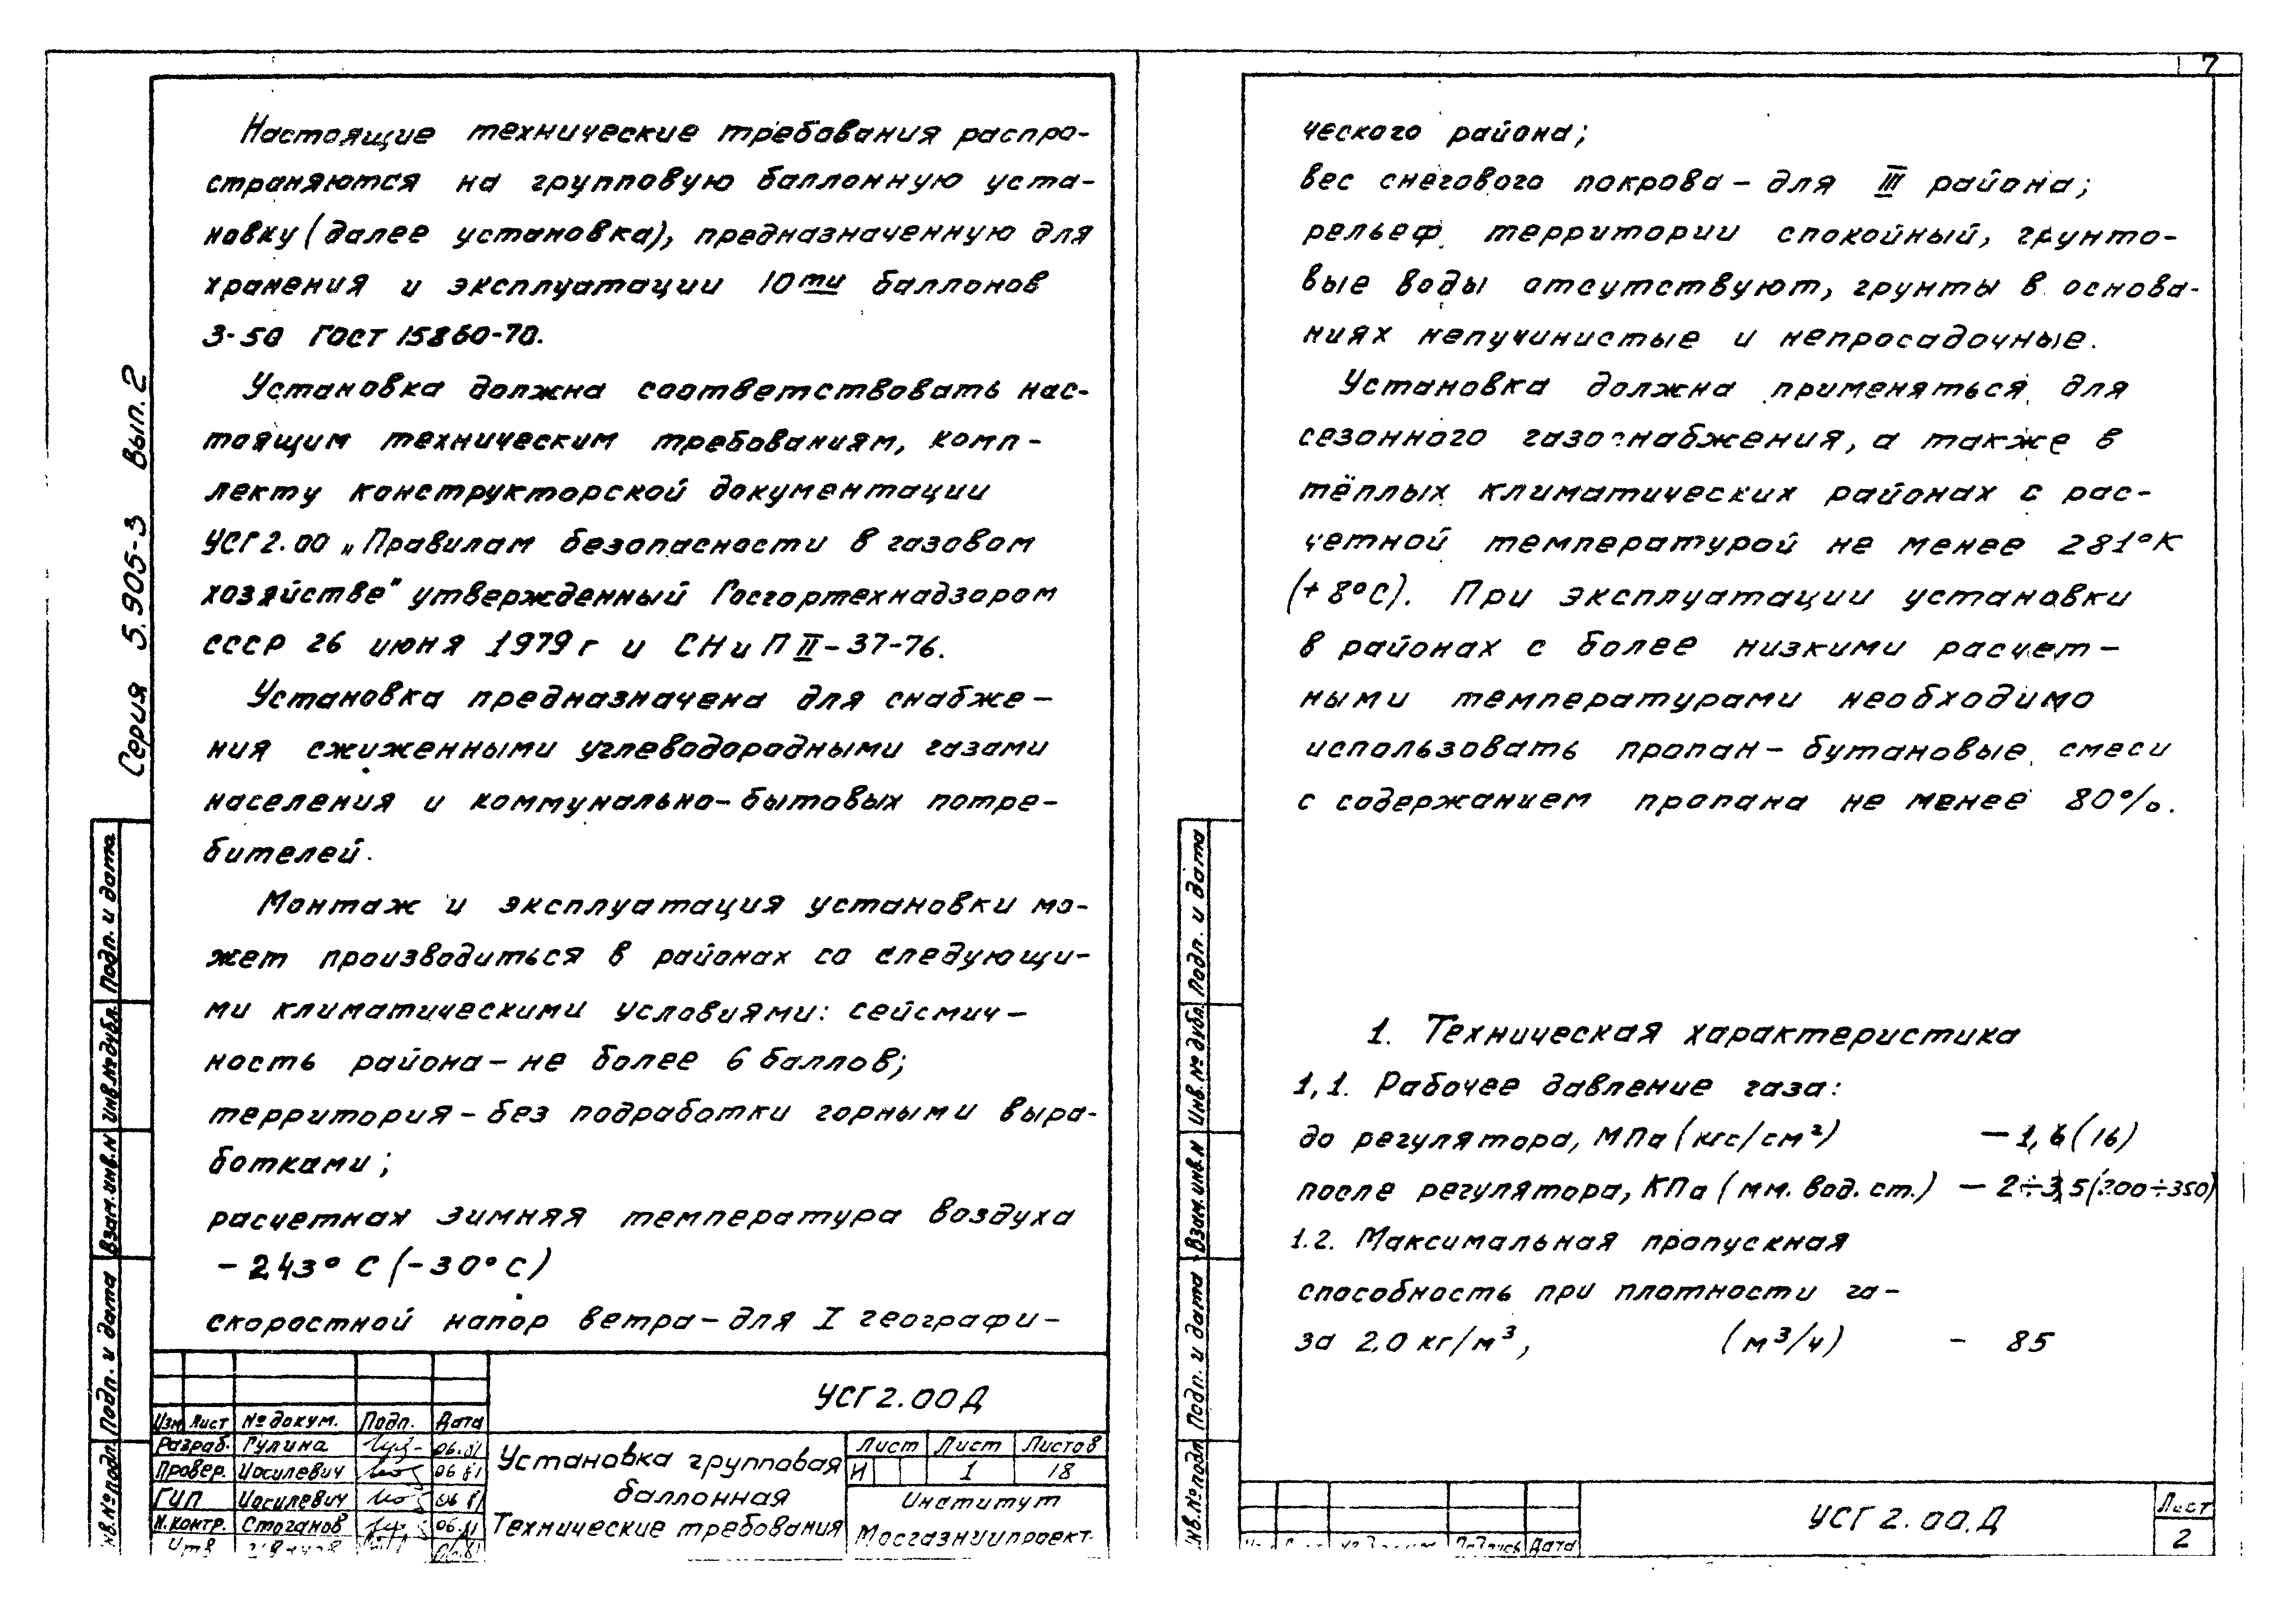 7
Настоящие технические требования распро-
страняются на групповую баллонную уста-
новку (далее установка), предназначенную для
хранения и эксплуатации 10ти баллонов
3-50 ГОСТ 15860-70.
Установка должна соответствовать нас-
тоящим техническим требованиям, комп-
лекту конструкторской документации
УСГ2.00 „Правилам безопасности в газовом
хозяйстве" утвержденный Госгортехнадзором
СССР 26 июня 1979г и СНиП II-37-76.
Установка предназначена для снабже-
ния сжиженными углеводородными газами
населения и коммунально-бытовых потре-
бителей.
Монтаж и эксплуатация установки мо-
жет производиться в районах со следующи-
ми климатическими условиями: сейсмич-
ность района - не более 6 баллов;
территория - без подработки горными выра-
ботками;
расчетная зимняя температура воздуха
- 243° С (-30°С)
скоростной напор ветра - для I географи-
Серия 5.905-3 Вып.2
Подп. и дата
Инв.№дубл.
Взам.инв.N
Подп. и дата
Инв.№подл.
УСГ2.00Д
Изм Лист №докум. Подп. Дата
Разраб. Гулина 06.81
Провер. Иосилевич 06 81
ГИП Иосилевич 06 81
Н.контр. Стоганов 06.81
Утв 06.81
Установка групповая
баллонная
Технические требования
Лист Лист Листов
И 1 18
Институт
Мосгазниипроект.
ческого района;
вес снегового покрова - для III района;
рельеф территории спокойный, грунто-
вые воды отсутствуют, грунты в основа-
ниях непучинистые и непросадочные.
Установка должна применяться для
сезонного газоснабжения, а также в
тёплых климатических районах с рас-
четной температурой не менее 281°К
(+8°С). При эксплуатации установки
в районах с более низкими расчет-
ными температурами необходимо
использовать пропан-бутановые смеси
с содержанием пропана не менее 80%.
1. Техническая характеристика
1,1. Рабочее давление газа:
до регулятора, МПа (кгс/см²) - 1,6 (16)
после регулятора, КПа (мм. вод. ст.) - 2÷3,5 (200÷350)
1.2. Максимальная пропускная
способность при плотности га-
за 2,0 кг/м³, (м³/ч) - 85
Подп. и дата
Инв.№ дубл.
Взам.инв.N
Подп. и дата
Инв.№подл
УСГ 2.00.Д
Подпись Дата
Лист
2